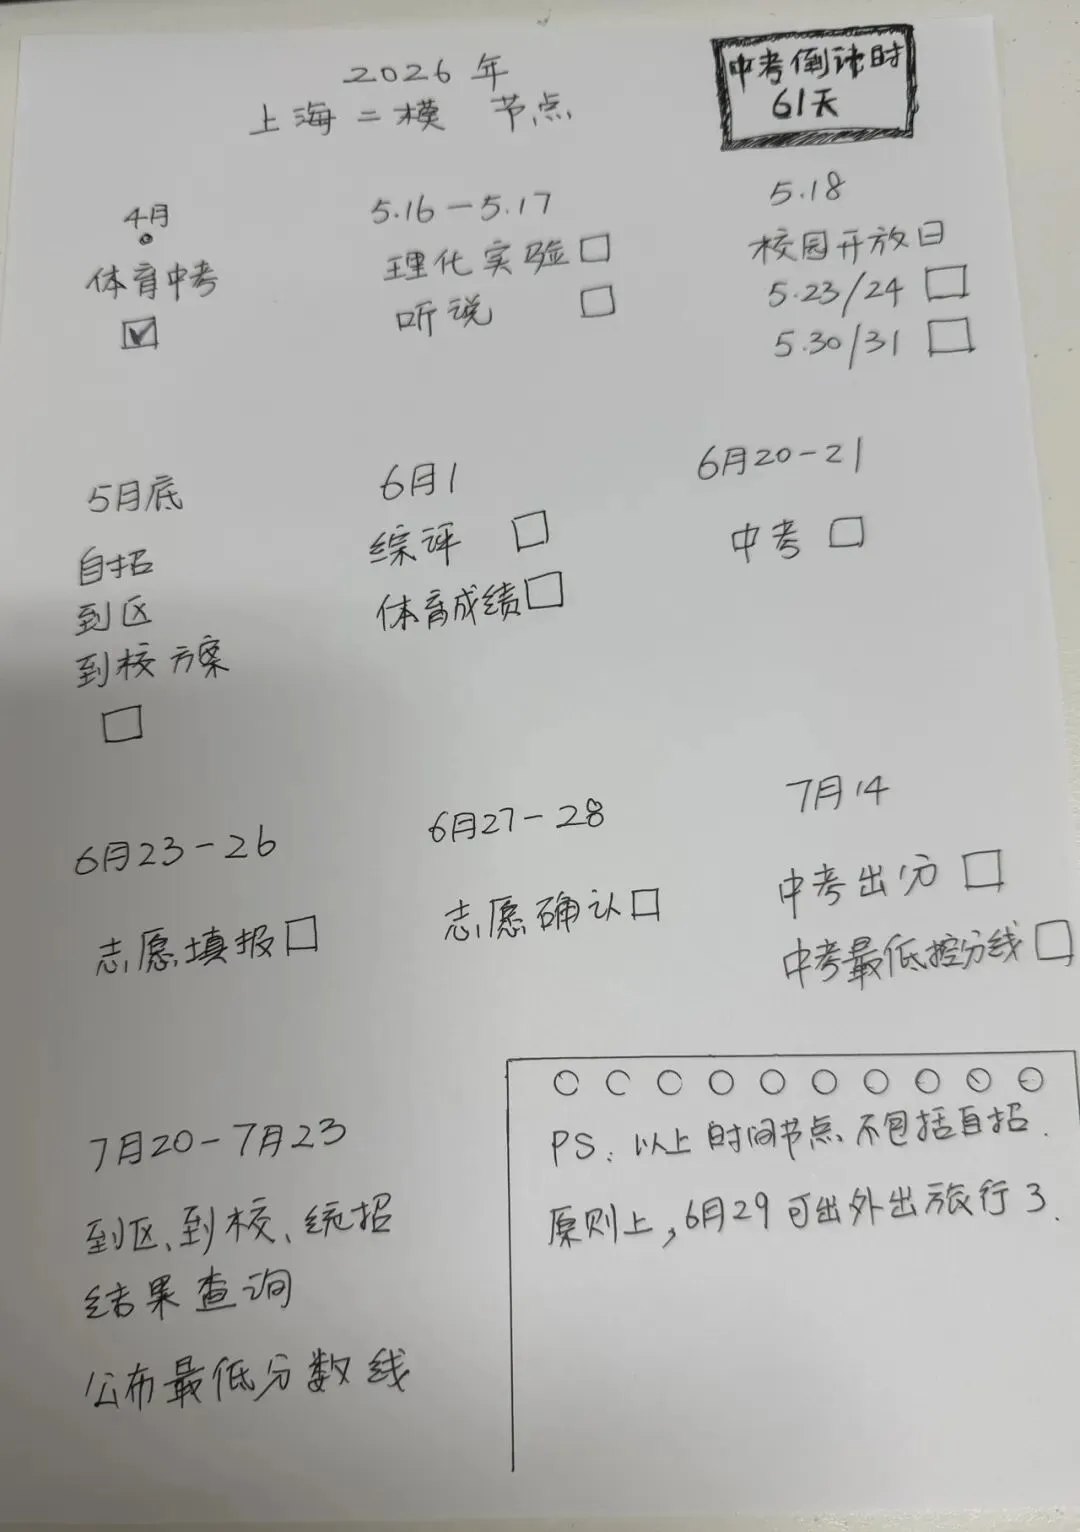 2026年
上海二模 节点
中考倒计时
61天
4月
体育中考
5.16-5.17
理化实验
听说
5.18
校园开放日
5.23/24
5.30/31
5月底
自招
到区
到校方案
6月1
综评
体育成绩
6月20-21
中考
6月23-26
志愿填报
6月27-28
志愿确认
7月14
中考出分
中考最低控分线
7月20-7月23
到区、到校、统招
结果查询
公布最低分数线
PS: 以上时间节点不包括自招.
原则上,6月29可出外出旅行3.